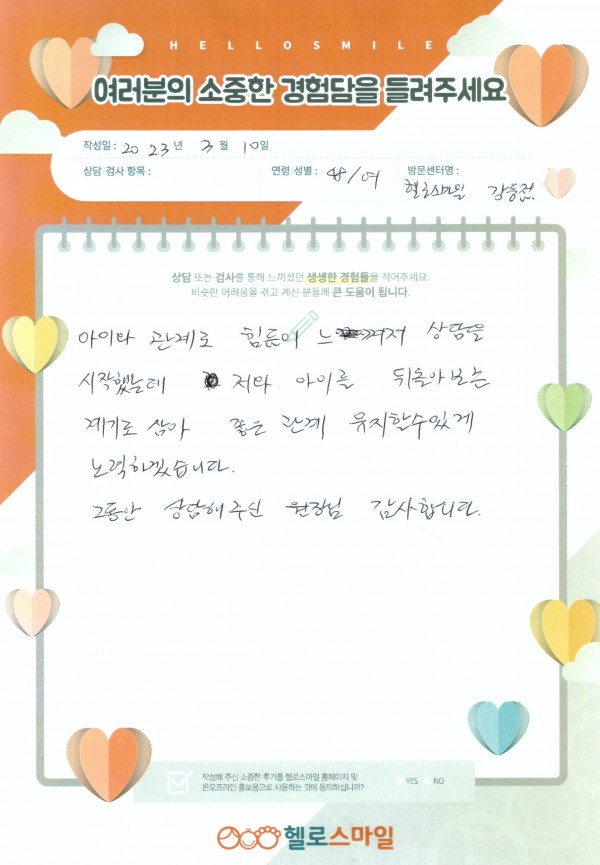 HELLOSMILE
여러분의 소중한 경험담을 들려주세요
작성일 : 2023년 3월 10일
상담 검사 항목 : 연령 성별 : 48/여 방문센터명 : 헬로스마일 강동점
상담 또는 검사를 통해 느끼셨던 생생한 경험들을 적어주세요.
비슷한 어려움을 겪고 계신 분들께 큰 도움이 됩니다.
아이와 관계로 힘듦이 느껴져 상담을
시작했는데 저와 아이를 뒤돌아보는
계기로 삼아 좋은 관계 유지할수있게
노력하겠습니다.
그동안 상담해주신 원장님 감사합니다.
작성해 주신 소중한 후기를 헬로스마일 홈페이지 및
온오프라인 홍보용으로 사용하는 것에 동의하십니까? YES NO
헬로스마일